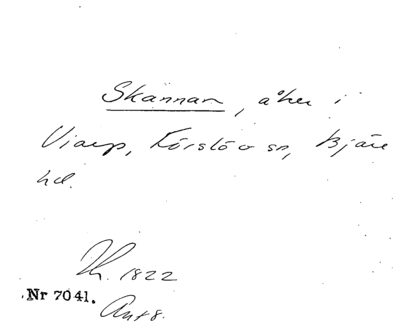 Skännan, åker i
Viarp, Förslöv sn, Bjäre
hd.
Th. 1822
Nr 7041.
Ant 8.